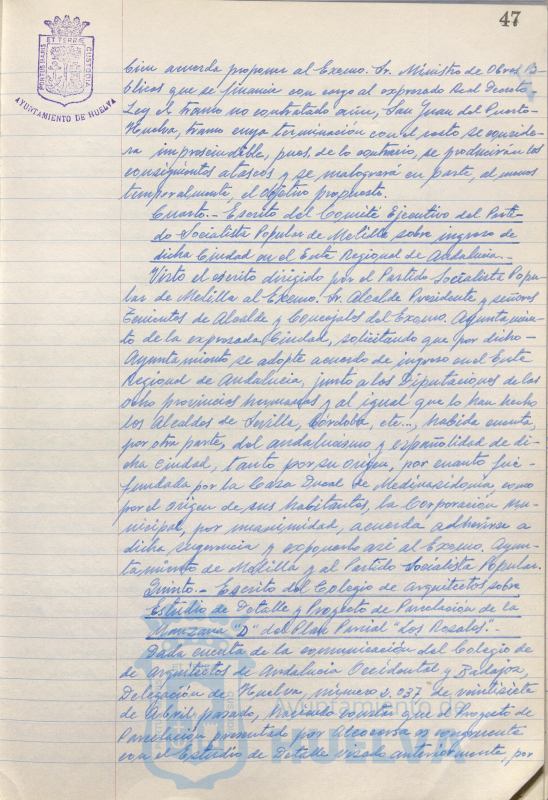 47
PORTUS MARIS ET TERRAE CUSTODIA
AYUNTAMIENTO DE HUELVA
ción acuerda proponer al Excmo. Sr. Ministro de Obras Pú-
blicas que se financie con cargo al expresado Real Decreto-
Ley el tramo no contratado aún, San Juan del Puerto-
Huelva, tramo cuya terminación con el resto se conside-
ra imprescindible, pues, de lo contrario, se producirán los
consiguientes atascos y se malogrará en parte, al menos
temporalmente, el objetivo propuesto.
Cuarto.- Escrito del Comité Ejecutivo del Parti-
do Socialista Popular de Melilla sobre ingreso de
dicha Ciudad en el Ente Regional de Andalucía.-
Visto el escrito dirigido por el Partido Socialista Popu-
lar de Melilla al Excmo. Sr. Alcalde Presidente y señores
Tenientes de Alcalde y Concejales del Excmo. Ayuntamien-
to de la expresada Ciudad, solicitando que por dicho
Ayuntamiento se adopte acuerdo de ingreso en el Ente
Regional de Andalucía, junto a las Diputaciones de las
ocho provincias hermanas y al igual que lo han hecho
los Alcaldes de Sevilla, Córdoba, etc., habida cuenta,
por otra parte, del andalucismo y españolidad de di-
cha Ciudad, tanto por su origen, por cuanto fué
fundada por la Casa Ducal de Medinasidonia como
por el origen de sus habitantes, la Corporación Mu-
nicipal, por unanimidad, acuerda adherirse a
dicha sugerencia y exponerlo así al Excmo. Ayun-
tamiento de Melilla y al Partido Socialista Popular.
Quinto.- Escrito del Colegio de Arquitectos sobre
Estudio de Detalle y Proyecto de Parcelación de la
Manzana "D" del Plan Parcial "Los Rosales".-
Dada cuenta de la comunicación del Colegio de
de Arquitectos de Andalucía Occidental y Badajoz,
Delegación de Huelva, número 2.037 de veintisiete
de Abril pasado, haciendo constar que el Proyecto de
Parcelación presentado por Alcocersa es congruente
con el Estudio de Detalle visado anteriormente, por
Ayuntamiento de